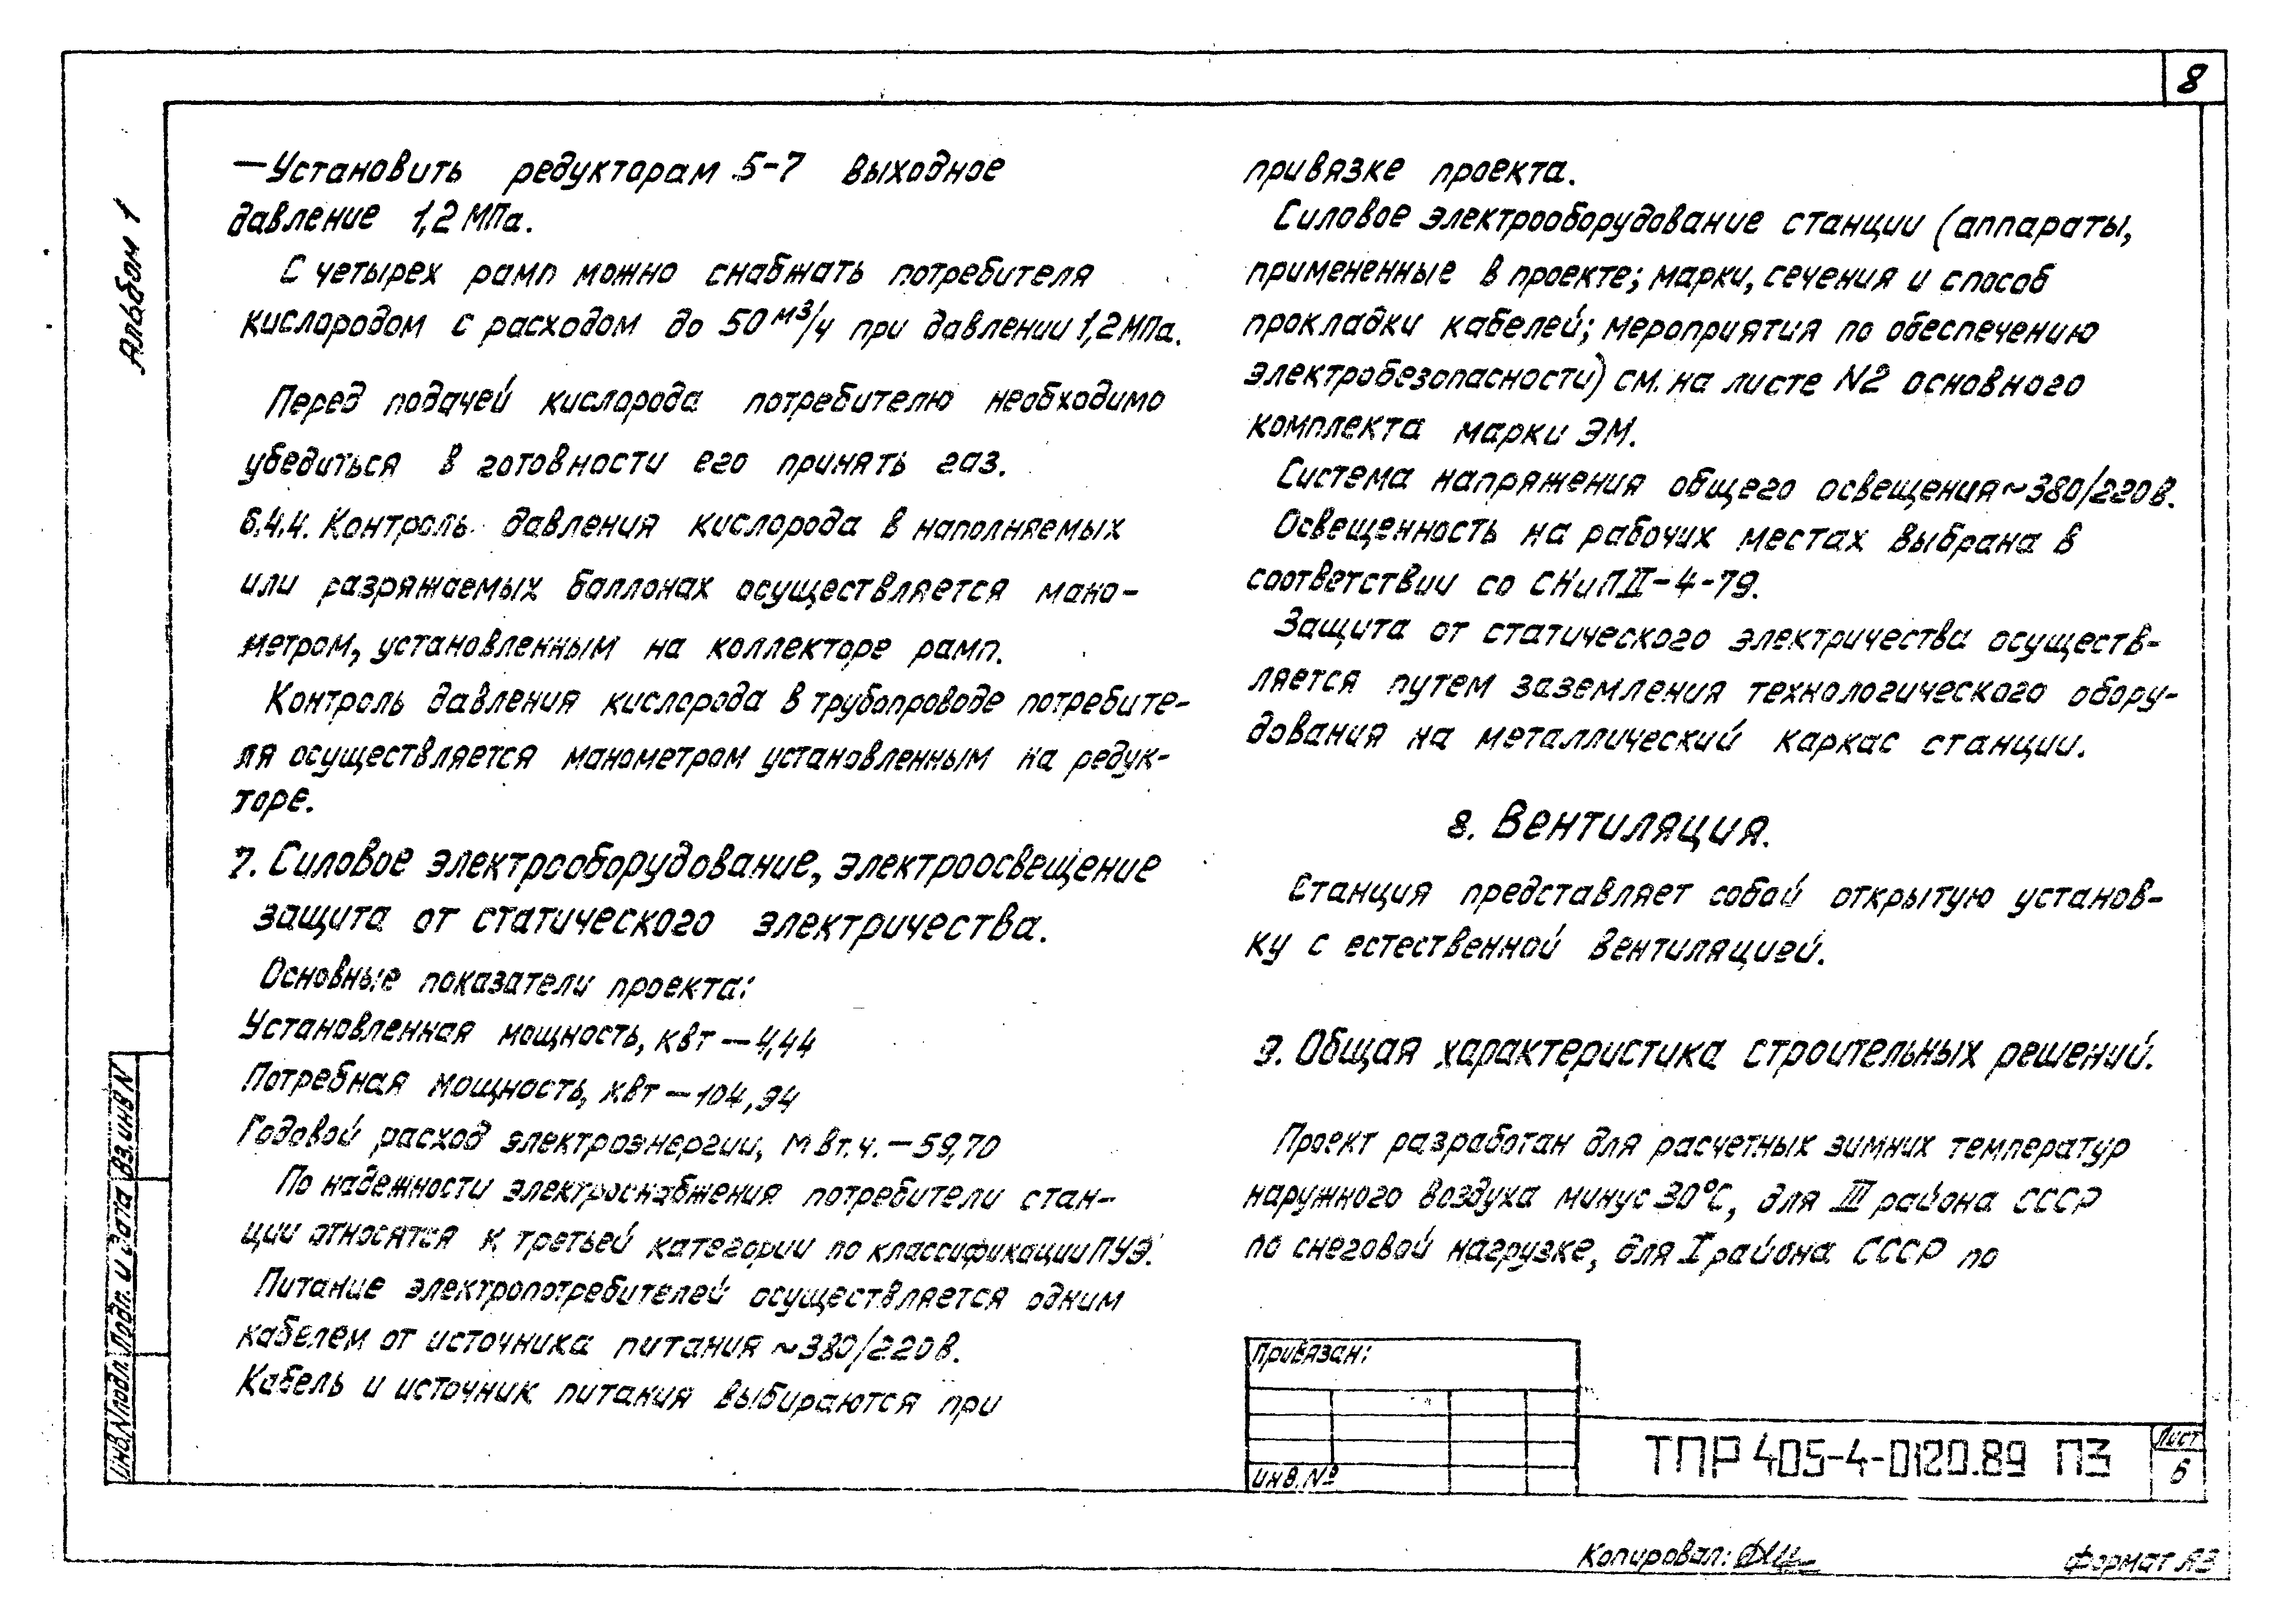 8
Альбом 1
— Установить редукторам 5-7 выходное
давление 1,2 МПа.
С четырех рамп можно снабжать потребителя
кислородом с расходом до 50 м³/ч при давлении 1,2 МПа.
Перед подачей кислорода потребителю необходимо
убедиться в готовности его принять газ.
6.4.4. Контроль давления кислорода в наполняемых
или разряжаемых баллонах осуществляется мано-
метром, установленным на коллекторе рамп.
Контроль давления кислорода в трубопроводе потребите-
ля осуществляется манометром установленным на редук-
торе.
7. Силовое электрооборудование, электроосвещение
защита от статического электричества.
Основные показатели проекта:
Установленная мощность, квт — 4,44
Потребная мощность, квт — 104,94
Годовой расход электроэнергии, Мвт.ч. — 59,70
По надежности электроснабжения потребители стан-
ции относятся к третьей категории по классификации ПУЭ.
Питание электропотребителей осуществляется одним
кабелем от источника питания ~380/220в.
Кабель и источник питания выбираются при
привязке проекта.
Силовое электрооборудование станции (аппараты,
примененные в проекте; марки, сечения и способ
прокладки кабелей; мероприятия по обеспечению
электробезопасности) см. на листе N2 основного
комплекта марки ЭМ.
Система напряжения общего освещения ~380/220в.
Освещенность на рабочих местах выбрана в
соответствии со СНиП II-4-79.
Защита от статического электричества осуществ-
ляется путем заземления технологического обору-
дования на металлический каркас станции.
8. Вентиляция.
Станция представляет собой открытую установ-
ку с естественной вентиляцией.
9. Общая характеристика строительных решений.
Проект разработан для расчетных зимних температур
наружного воздуха минус 30°С, для III района СССР
по снеговой нагрузке, для I района СССР по
Привязан:
Инв. №
ТПР 405-4-0120.89 ПЗ
Лист
6
Инв.Nподл.
Подп. и дата
Вз.инв N
Копировал:
Формат А3